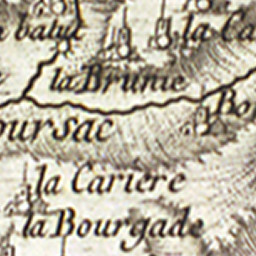 la Ca
la Brunie
Bo
oursac
la Cariere
la Bourgade